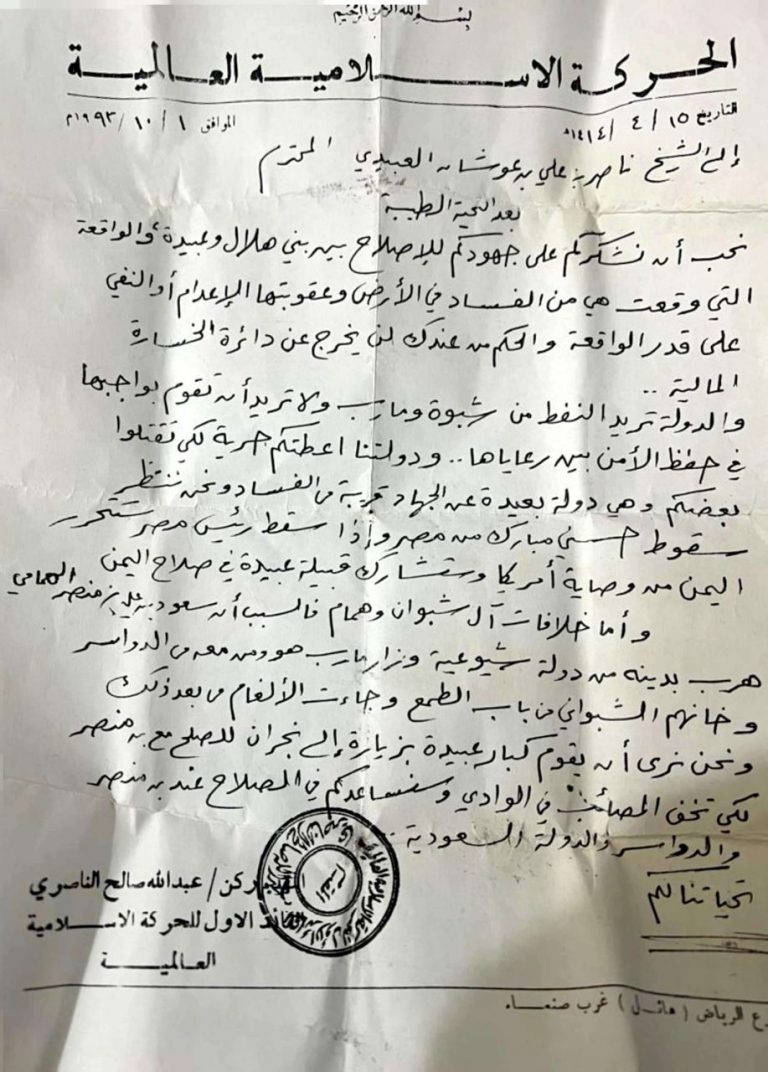 بسم الله الرحمن الرحيم
الحركة الاسلامية العالمية
التاريخ ١٥ / ٤ / ١٤١٤هـ الموافق ١ / ١٠ / ١٩٩٣م
إلى الشيخ ناصر بن علي بن عوشان العبيدي المحترم
بعد التحية الطيبة
نحب أن نشكركم على جهودكم للإصلاح بين بني هلال وعبيدة والواقعة
التي وقعت هي من الفساد في الأرض وعقوبتها الإعدام أو النفي
على قدر الواقعة والحكم من عندك لن يخرج عن دائرة الخسارة
المالية ..
والدولة تريد النفط من شبوة ومارب ولا تريد أن تقوم بواجبها
في حفظ الأمن بين رعاياها .. ودولتنا اعطتكم حرية لكي تقتلوا
بعضكم وهي دولة بعيدة عن الجهاد قريبة من الفساد ونحن ننتظر
سقوط حسني مبارك من مصر وإذا سقط رئيس مصر ستتحرر
اليمن من وصاية أمريكا وستشارك قبيلة عبيدة في صلاح اليمن
وأما خلافات آل شبوان وهمام فالسبب أن سعود بن علي بن منصر الهمامي
هرب بدينه من دولة شيوعية وزار مارب هو ومن معه من الدواسر
وخانهم الشبواني من باب الطمع وجاءت الألغام من بعد ذلك
ونحن نرى أن يقوم كبار عبيدة بزيارة إلى نجران للصلح مع بن منصر
لكي تخف المصائب في الوادي وسنساعدكم في الصلاح عند بن منصر
والدواسر والدولة السعودية
تحياتنا لكم
ركن / عبدالله صالح الناصري
القائد الاول للحركة الاسلامية
العالمية
الرياض ( هائل ) غرب صنعاء